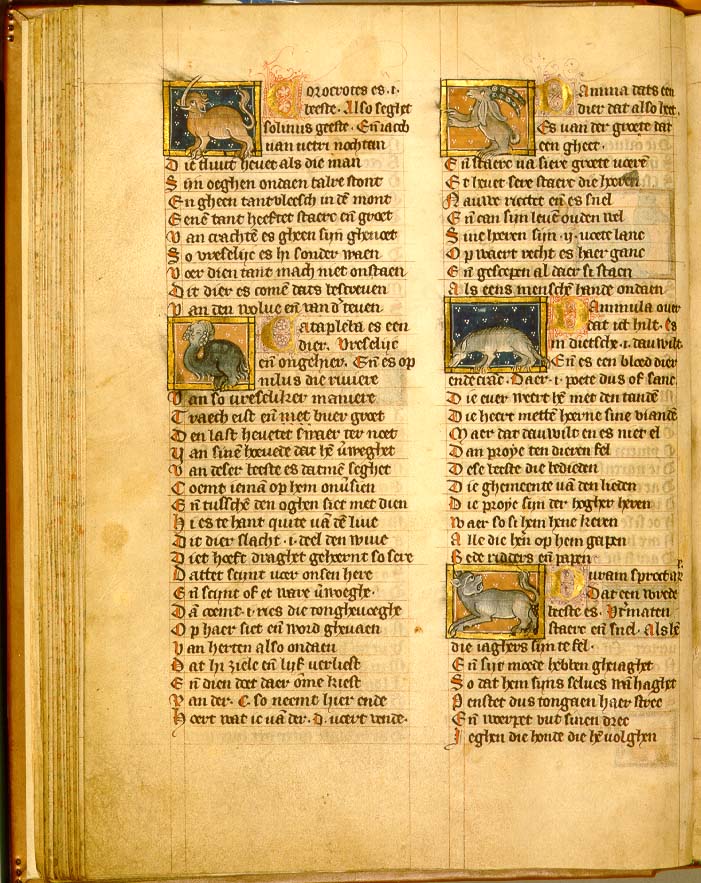 Corocrotes es .i.
beeste. Also seghet
solinus geeste. Eñ iacob
uan uetri nochtan
Die tluut heuet als die man
Sijn oeghen ondaen talre stont
En gheen tantvleesch in dē mont
Eenē tant heeftet staerc eñ groet
Van crachtē es gheen sijn ghenoet
So vreselijc es hi sonder waen
Voer dien tant mach niet onstaen
Dit dier es comē dats bescreuen
Van den wolue eñ van d' teuen
Catapleta es een
dier. Vreselijc
eñ ongehier. Eñ es op
nilus die riuiere
Van so vreseliker maniere
Traech eist eñ met buer groet
Den last heuetet swaer ter noet
Van sinē hoeuede dat hē uweghet
Van deser beeste es datmē seghet
Coemt iemā op hem onusien
Eñ tusschē den oghen siet met dien
Hi es te hant quite uā dē liue
Dit dier slacht .i. deel den wiue
Diet hoeft draghet gehoernt so sere
Dattet scijnt uoer onsen here
Eñ scijnt of et ware uwoeghe
Dā coemt .i. ries die ionghe uoeghe
Op haer siet eñ word gheuaen
Van herten also ondaen
Dat hi ziele eñ lijf verliest
Eñ dien doet daer ōme kiest
Van der .C. so neemt hier ende
Hoert wat ic uā der .D. uoert vende.
Damma dats een
dier dat also het.
Es uan der groete dat
een gheet.
Eñ staerc na siere groete weert
Et heuet sere staerc die horen
Nauwe riectet eñ es snel
Eñ can sijn leuē ouden wel
Sine horen sijn .ij. uoete lanc
Op waert recht es haer ganc
Eñ gescepen al daer si staen
Als eens menschē hande ondaen
Dammula ouer
dat ict hilt. Es
in dietsche .i. dauwilt
Eñ es een bloed dier
ende cranc. Daer .i. poete dus of sanc
Die euer weert hē met den tandē
Die heert mettē hoerne sine viandē
Maer dat dauwilt en es niet el
Dan proye ten dieren fel
Dese beeste die bedieden
Die ghemeente uā den lieden
Die proye sijn der hogher heren
Waer so si hem hene keren
Alle die hēn op hem gapen
Bede ridders eñ papen
Duram sprect
Dat een wrede
beeste es. Vt'maten
staerc eñ snel. Als hē
die iaghers sijn te fel.
Eñ sijt moede hebben gheiaghet
So dat hem sijns selues wā haghet
Penset dus tongaen haer strec
Eñ woerpet vut sinen drec
Ieghen die honde die hē volghen